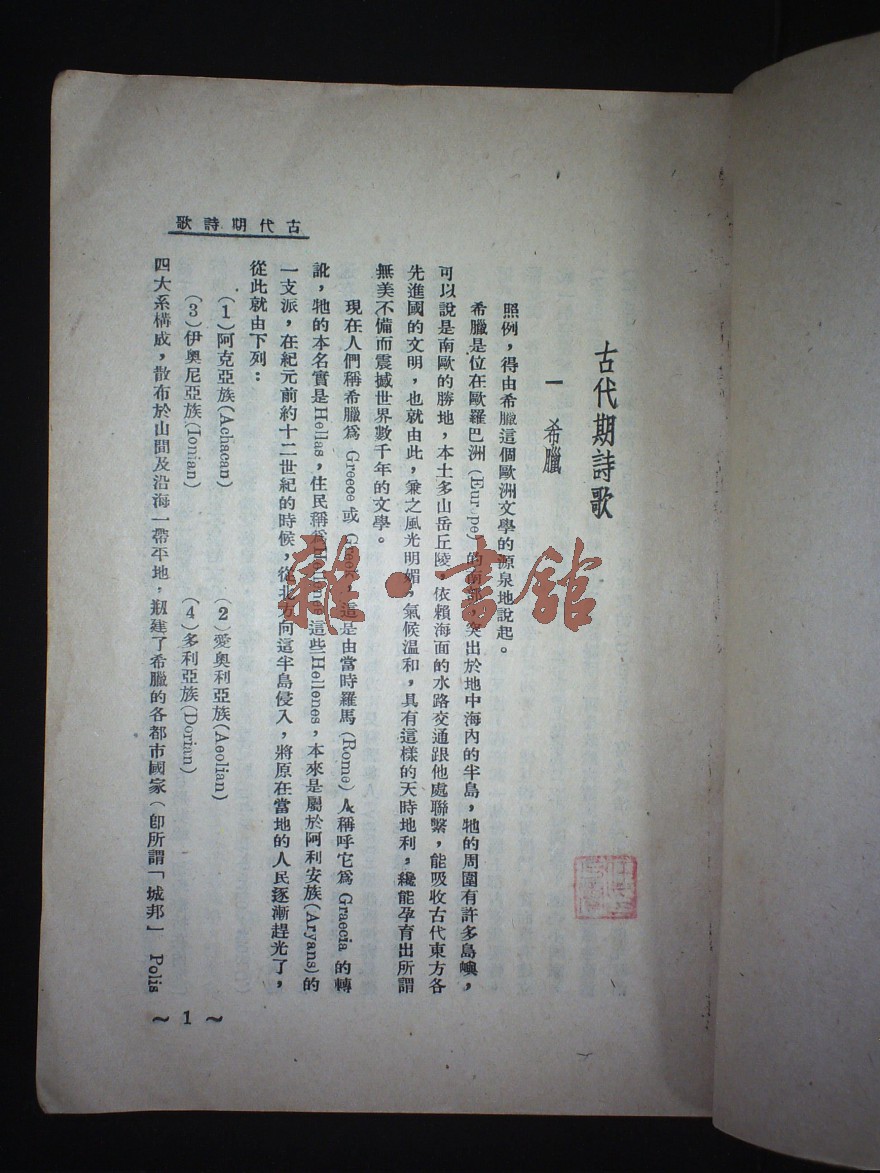 古代期詩歌
古代期詩歌
一 希臘
照例，得由希臘這個歐洲文學的源泉地說起。
希臘是位在歐羅巴洲(Eur pe)的南部，突出於地中海內的半島，牠的周圍有許多島嶼，
可以說是南歐的勝地，本土多山岳丘陵，依賴海面的水路交通跟他處聯繫，能吸收古代東方各
先進國的文明，也就由此，兼之風光明媚，氣候溫和，具有這樣的天時地利，纔能孕育出所謂
無美不備而震撼世界數千年的文學。
現在人們稱希臘爲 Greece 或 ，這是由當時羅馬(Rome)人稱呼它爲 Graecia 的轉
訛，牠的本名實是Hellas，住民稱爲 這些Hellenes，本來是屬於阿利安族(Aryans)的
一支派，在紀元前約十二世紀的時候，從北方向這半島侵入，將原在當地的人民逐漸趕光了，
從此就由下列：
（1）阿克亞族(Achacan) （2）愛奧利亞族(Aeolian)
（3）伊奧尼亞族(Ionian) （4）多利亞族(Dorian)
四大系構成，散布於山間及沿海一帶平地，剏建了希臘的各都市國家（卽所謂「城邦」 Polis
～ 1 ～
雜·書館